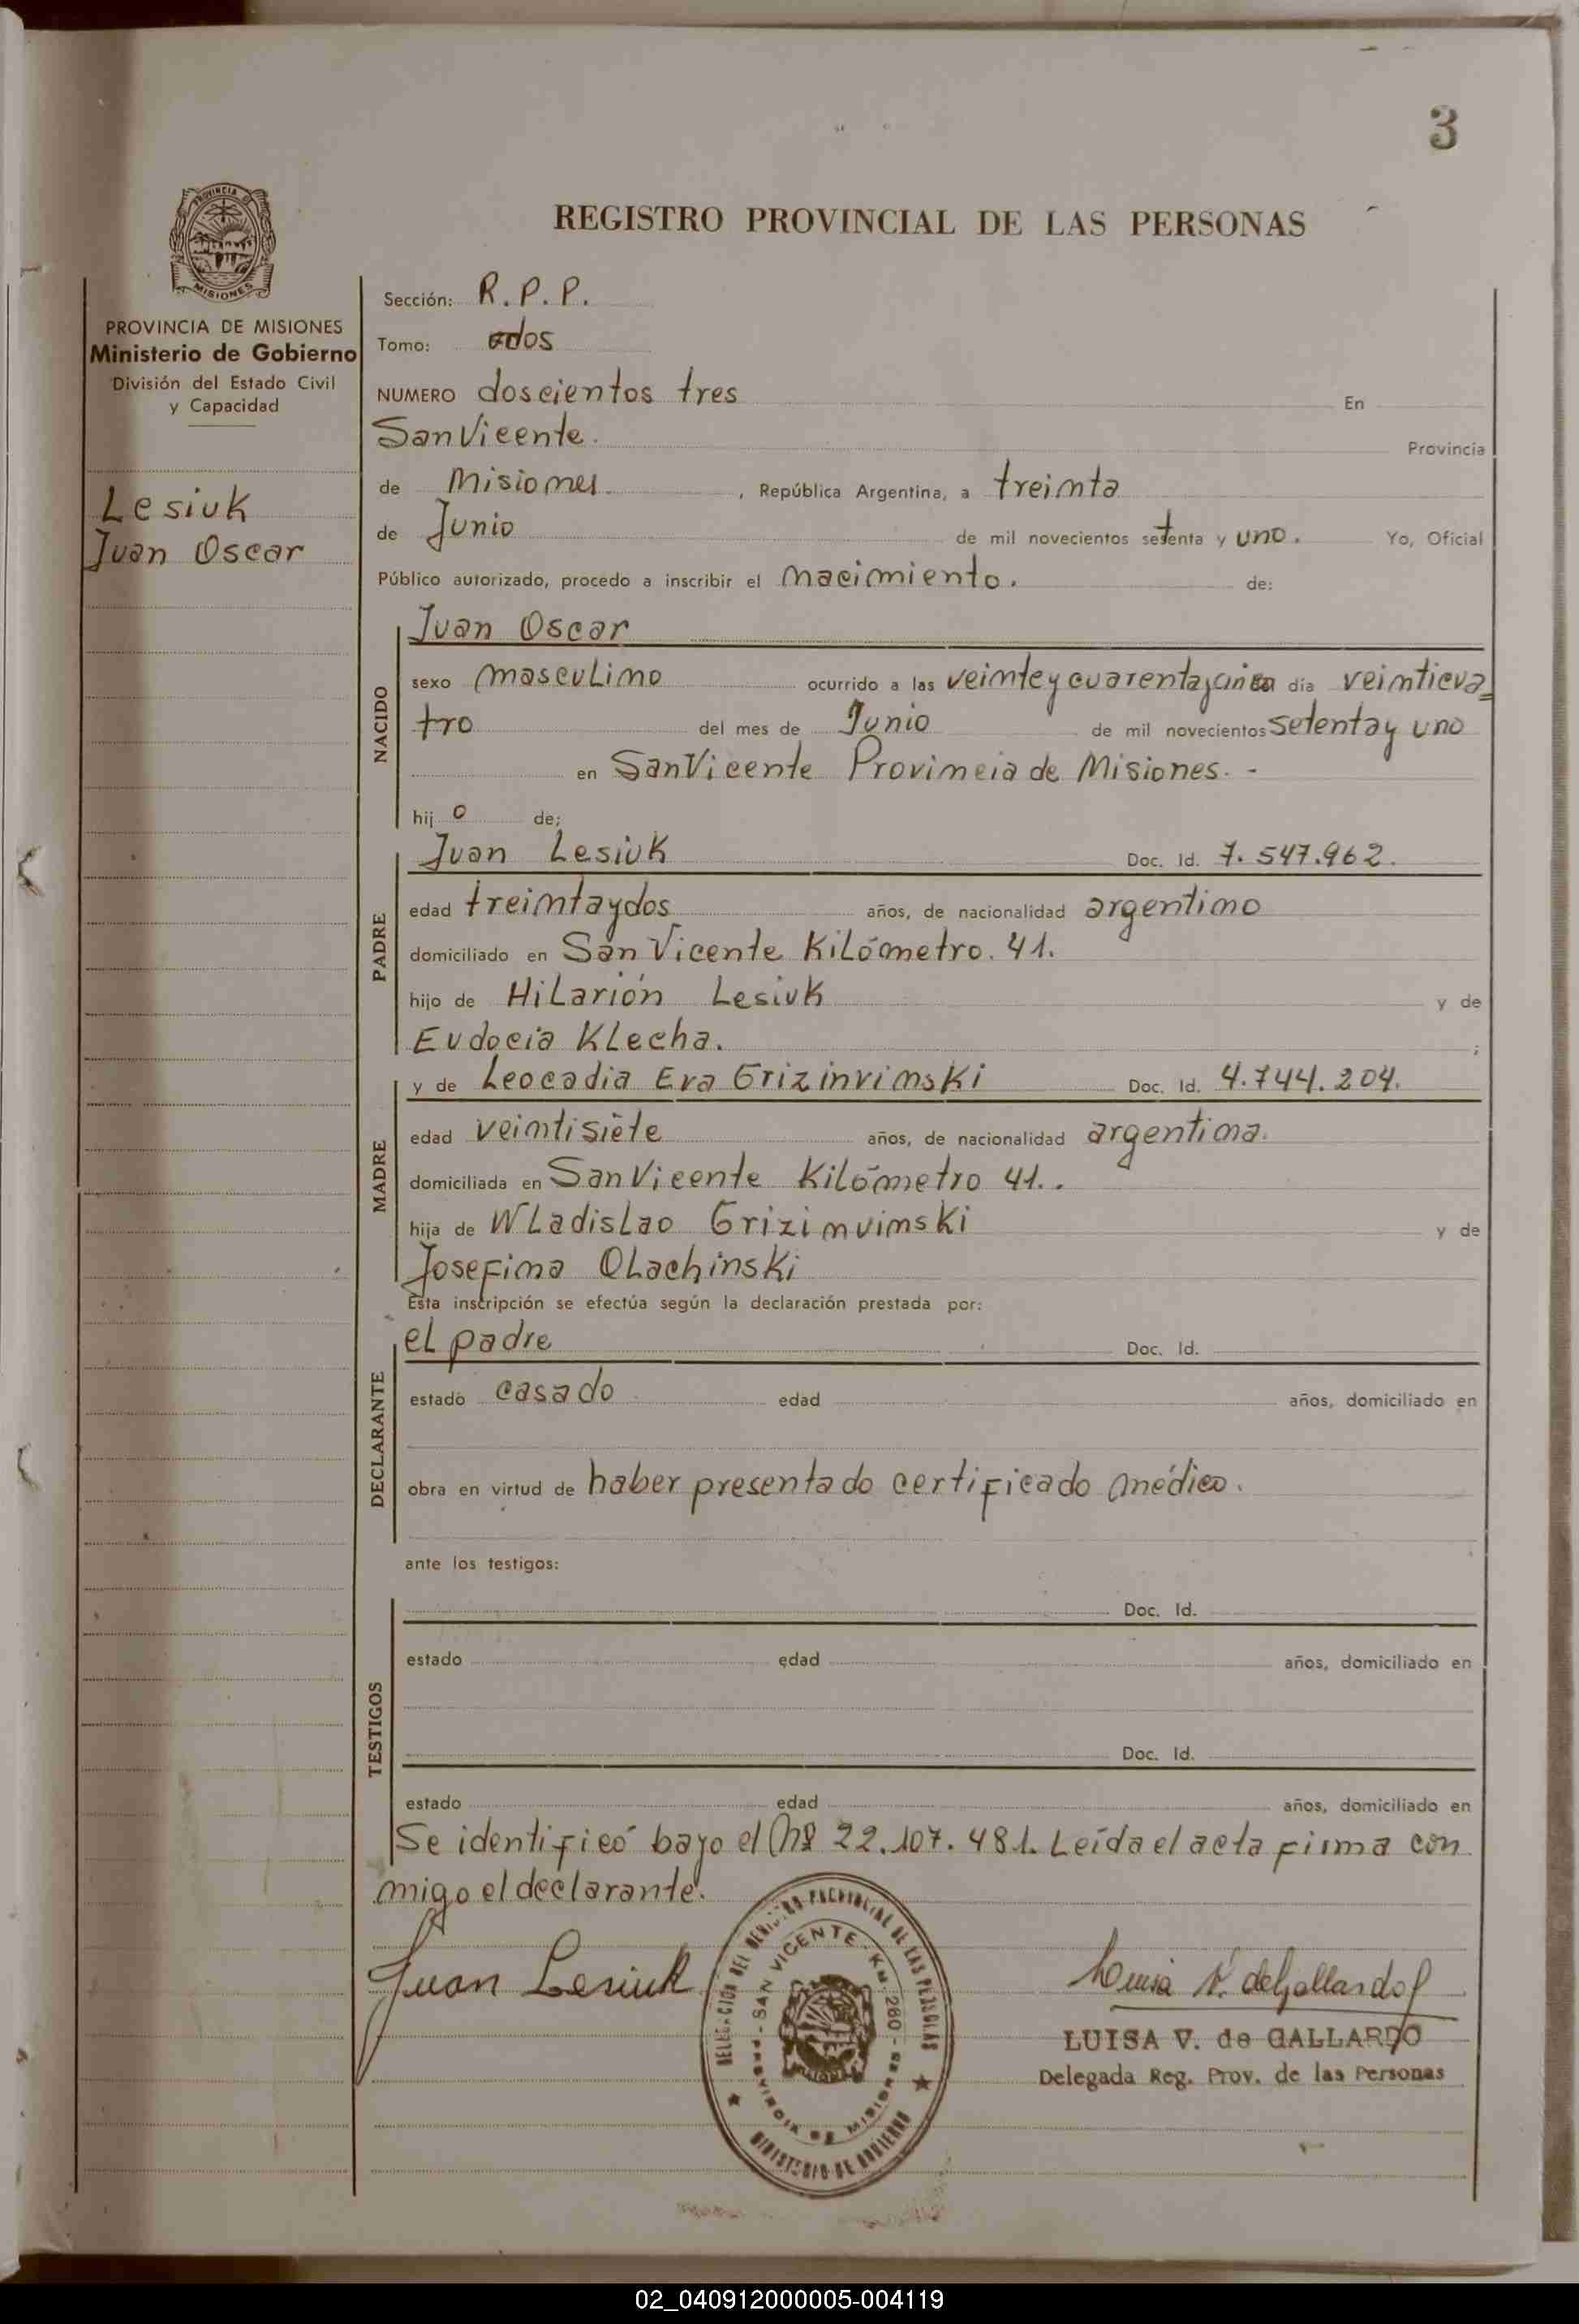 3
REGISTRO PROVINCIAL DE LAS PERSONAS
PROVINCIA DE MISIONES
MISIONES
PROVINCIA DE MISIONES
Ministerio de Gobierno
División del Estado Civil
y Capacidad
Lesiuk
Juan Oscar
Sección: R. P. P.
Tomo: dos
NUMERO doscientos tres En
San Vicente. Provincia
de Misiones. , República Argentina, a treinta
de Junio de mil novecientos setenta y uno. Yo, Oficial
Público autorizado, procedo a inscribir el nacimiento. de:
NACIDO
Juan Oscar
sexo masculino ocurrido a las veinte y cuarenta y cinco día veinticua=
tro del mes de Junio de mil novecientos setenta y uno
en San Vicente Provincia de Misiones. -
hij o de;
PADRE
Juan Lesiuk Doc. Id. 7.547.962.
edad treinta y dos años, de nacionalidad argentino
domiciliado en San Vicente Kilómetro. 41.
hijo de Hilarión Lesiuk y de
Eudocia Klecha. ;
MADRE
y de Leocadia Eva Grizinvinski Doc. Id. 4.744.204.
edad veintisiete años, de nacionalidad argentina.
domiciliada en San Vicente Kilómetro 41..
hija de Wladislao Grizinvinski y de
Josefina Olachinski
Esta inscripción se efectúa según la declaración prestada por:
DECLARANTE
el padre Doc. Id.
estado casado edad años, domiciliado en
obra en virtud de haber presentado certificado médico.
ante los testigos:
TESTIGOS
Doc. Id.
estado edad años, domiciliado en
Doc. Id.
estado edad años, domiciliado en
Se identificó bajo el Nº 22.107.481. Leída el acta firma con
migo el declarante.
Juan Lesiuk
DELEGACIÓN DEL REGISTRO PROVINCIAL DE LAS PERSONAS
SAN VICENTE - KM. 260 - PROVINCIA DE MISIONES
MINISTERIO DE GOBIERNO
Luisa V. de Gallardo
LUISA V. de GALLARDO
Delegada Reg. Prov. de las Personas
02_040912000005-004119